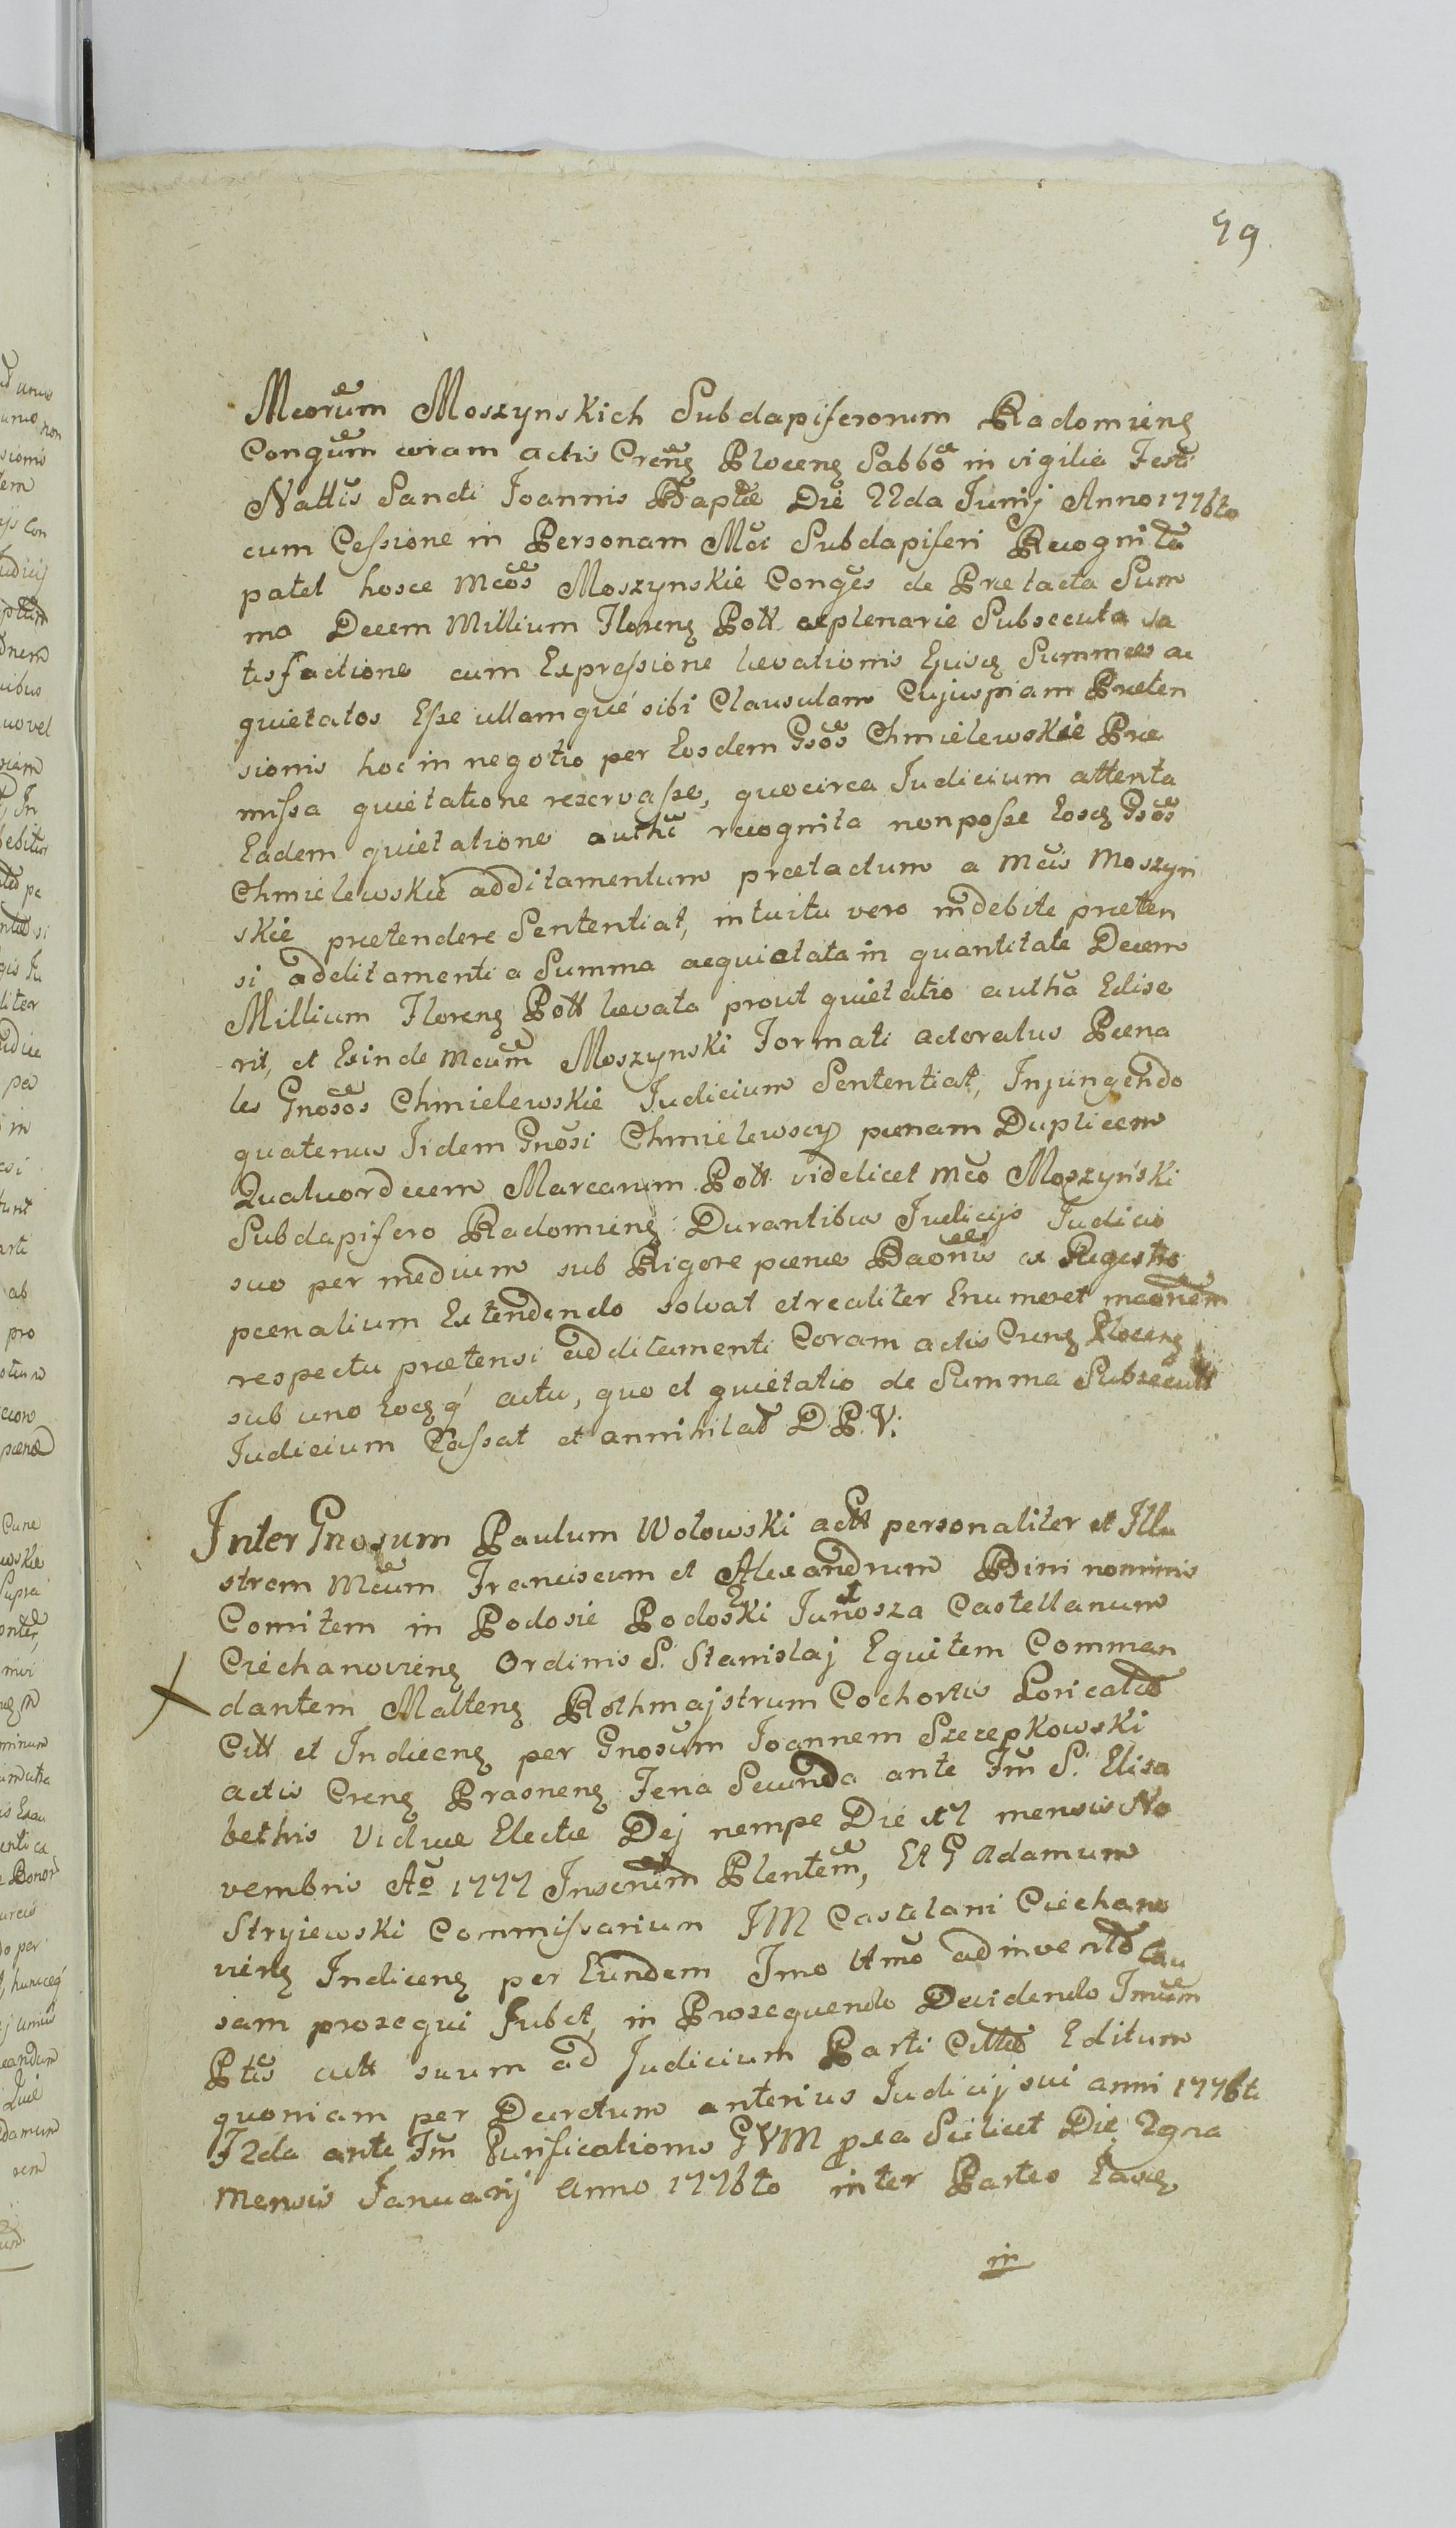 49
Mcorum Moszynskich Subdapiferorum Radomieng
Congum coram actis Crenz Plocenz Sabbo in vigilia Festi
Nattis Sancti Joannis Baptae Die 22da Junij Anno 1776to
cum Cessione in Personam Mci Subdapiferi Recognita
patet hosce Mcos Moszynskie Conges de Praetacta Sum
ma Decem Millium Florenz Poll. explenarie Subsecuta sa
tisfactione cum Expressione levationis Ejusq Summae ac
quietatos Esse ullamque sibi Clausulam Cujuspiam Praeten
sionis hoc in negotio per Eosdem Gsos Chmielewskie Prae
missa quietatione reservasse, quocirca Judicium attenta
Eadem quietatione authe recognita non posse Eosq Gsos
Chmielewskie additamentum praetactum a Mcis Moszyn
skie praetendere Sententiat, intuitu vero indebite praeten
si additamenti a Summa acquietata in quantitate Decem
Millium Florenz Poll levata prout quietatio autha Edise
rit, et Exinde Mcum Moszynski Formati actoratus Paena
les Gnosos Chmielewskie Judicium Sententiat, Injungendo
quatenus Iidem Gnosi Chmielewscy paenam Duplicem
Quatuordecem Marcarum Poll. videlicet Mco Moszyński
Subdapifero Radomienz: Durantibus Judicijs Judicio
suo per medium sub Rigore paenae Baonis ex Regestro
paenalium Extendendo solvat et realiter Enumeret meonem
respectu praetensi additamenti Coram actis Crenz Plocenz
sub uno Eoqz q́ actu, quo et quietatio de Summa Subsecuta
Judicium Cassat et annihilat D.P.V.
Inter Gnosum Paulum Wolowski actt personaliter et Illu
strem Mcum Franciscum et Alexandrum Bini nominis
Comitem in Podosie Podoski Junosza Castellanum
Ciechanovienz Ordinis S. Stanislaj Equitem Comman
dantem Maltenz Rothmajstrum Cochortis Loricatae
Citt et Indicenz per Gnosum Joannem Szczepkowski
actis Crenz Prasnenz Feria Secunda ante Fm S. Elisa
bethis Viduae Electae Dej nempe Die 17 mensis No
vembris Ao 1777 Insertum Plentem, Et G Adamum
Stryiewski Commissarium JM Castelani Ciechano
vienz Indicenz per Eundem Imo Utmo adinvento Cau
sam prosequi Jubet, in Prosequendo Decidendo Imum
Ptis actt suum ad Judicium Parti Cittae Editum
quoniam per Decretum anterius Judicij sui anni 1776ti
F 2da ante Fm Purificationis GVM pxa Scilicet Die 29na
Mensis Januarij Anno 1776to inter Partes Easq
in